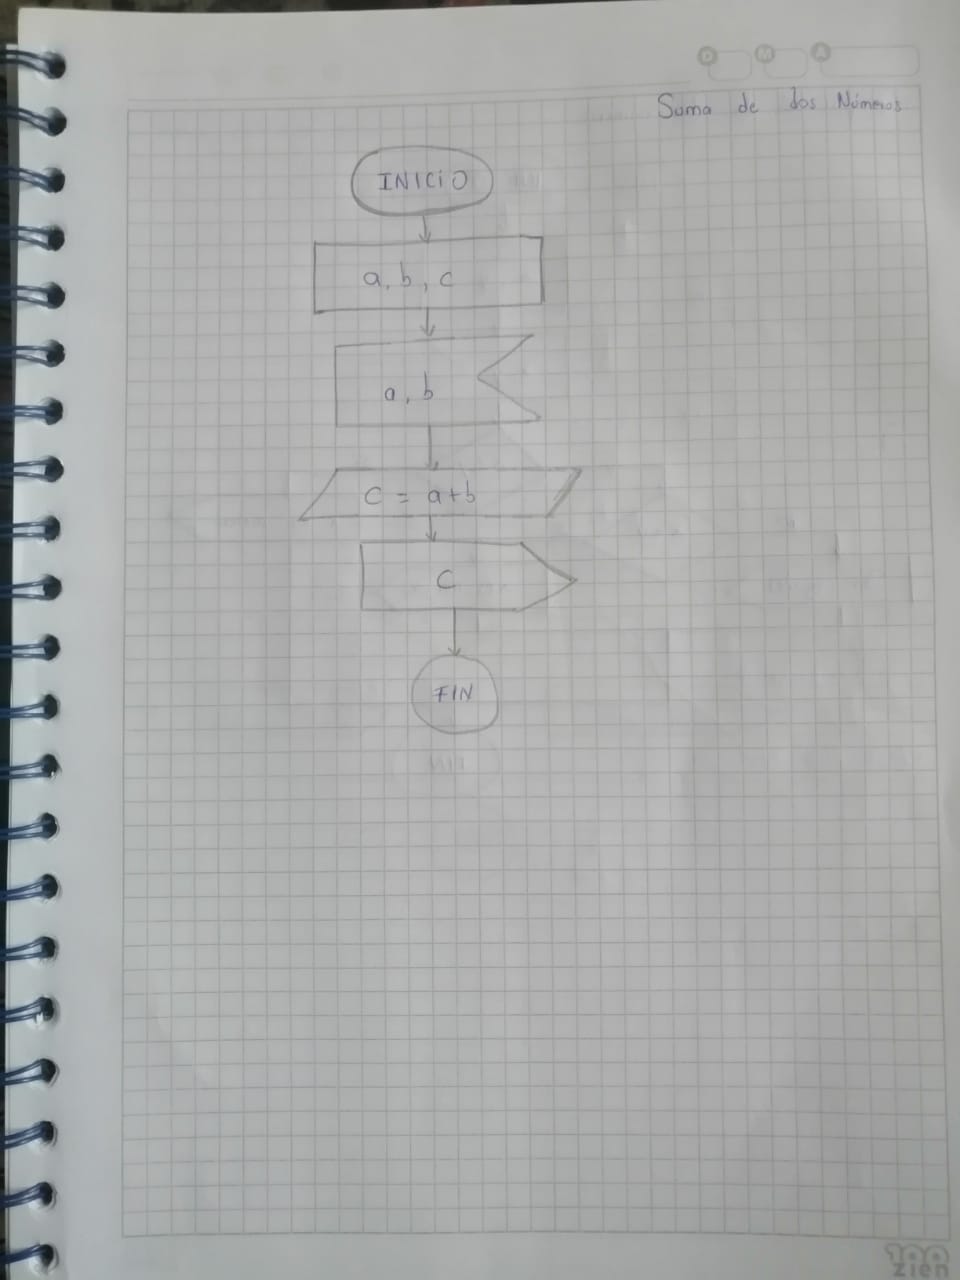 D M A
Suma de dos Números
INICIO
a, b, c
a, b
c = a+b
C
FIN
100
zien